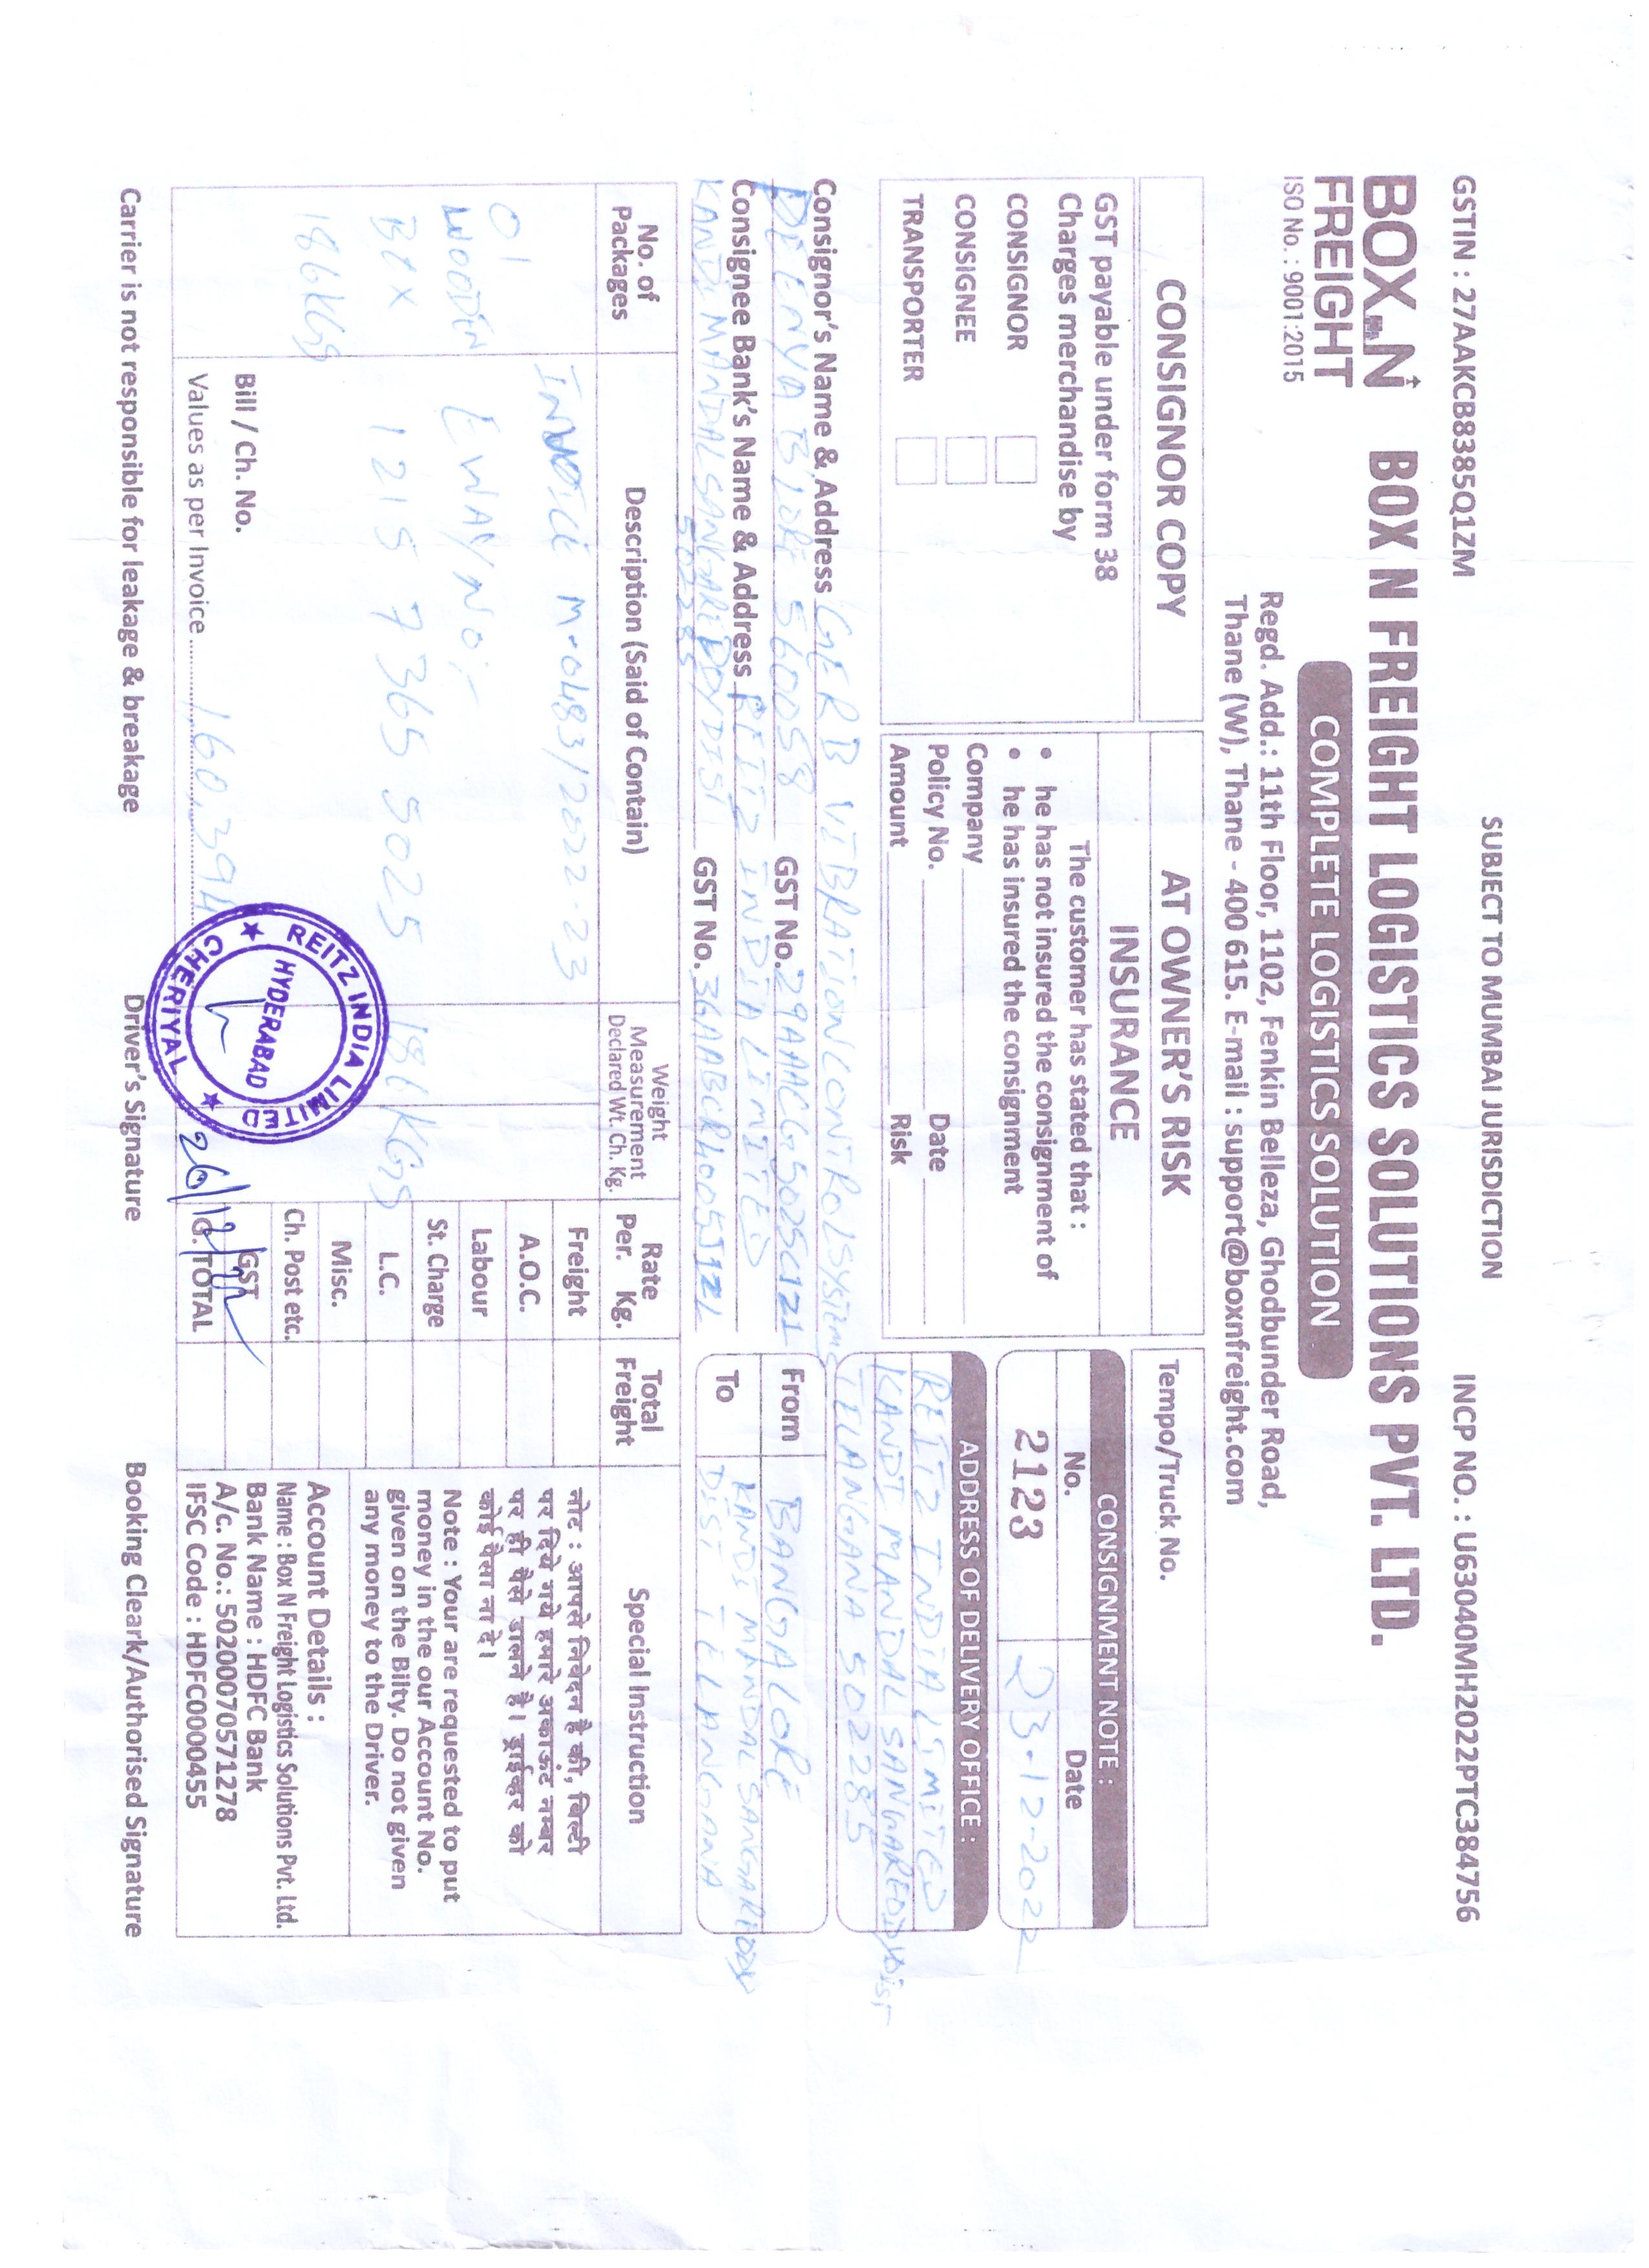 SUBJECT TO MUMBAI JURISDICTION
GSTIN : 27AAKCB8385Q1ZM
INCP NO. : U63040MH2022PTC384756
BOX N
FREIGHT
ISO No. : 9001:2015
BOX N FREIGHT LOGISTICS SOLUTIONS PVT. LTD.
COMPLETE LOGISTICS SOLUTION
Regd. Add.: 11th Floor, 1102, Fenkin Belleza, Ghodbunder Road,
Thane (W), Thane - 400 615. E-mail : support@boxnfreight.com
CONSIGNOR COPY
GST payable under form 38
Charges merchandise by
CONSIGNOR
CONSIGNEE
TRANSPORTER
AT OWNER'S RISK
INSURANCE
The customer has stated that :
• he has not insured the consignment of
• he has insured the consignment
Company
Policy No. Date
Amount Risk
Tempo/Truck No.
CONSIGNMENT NOTE :
No. Date
2123 23-12-2022
ADDRESS OF DELIVERY OFFICE :
REITZ INDIA LIMITED
KANDI MANDAL SANGAREDDY DIST
TELANGANA 502285
Consignor's Name & Address GERB VIBRATION CONTROL SYSTEMS
PEENYA B'LORE 560058 GST No. 29AAACG5025C1Z1
Consignee Bank's Name & Address REITZ INDIA LIMITED
KANDI MANDAL SANGAREDDY DIST GST No. 36AABCR4005J1ZL
502285
From BANGALORE
To KANDI MANDAL SANGAREDDY
DIST TELANGANA
No. of
Packages
Description (Said of Contain)
Weight
Measurement
Declared Wt. Ch. Kg.
Rate
Per. Kg.
Total
Freight
Special Instruction
INVOICE M-0483/2022-23
01
WOODEN
BOX
186KGS
EWAY NO:-
1215 7365 5025
186 KGS
Bill / Ch. No.
Values as per Invoice 160,394
Freight
A.O.C.
Labour
St. Charge
L.C.
Misc.
Ch. Post etc.
GST
G. TOTAL
26/12/22
REITZ INDIA LIMITED
HYDERABAD
CHERIYAL
नोट : आपसे निवेदन है की, बिल्टी
पर दिये गये हमारे अकाऊंट नम्बर
पर ही पैसे डालने है। ड्राईव्हर को
कोई पैसा ना दे।
Note : Your are requested to put
money in the our Account No.
given on the Bilty. Do not given
any money to the Driver.
Account Details :
Name : Box N Freight Logistics Solutions Pvt. Ltd.
Bank Name : HDFC Bank
A/c. No.: 50200070571278
IFSC Code : HDFC0000455
Carrier is not responsible for leakage & breakage
Driver's Signature
Booking Cleark/Authorised Signature